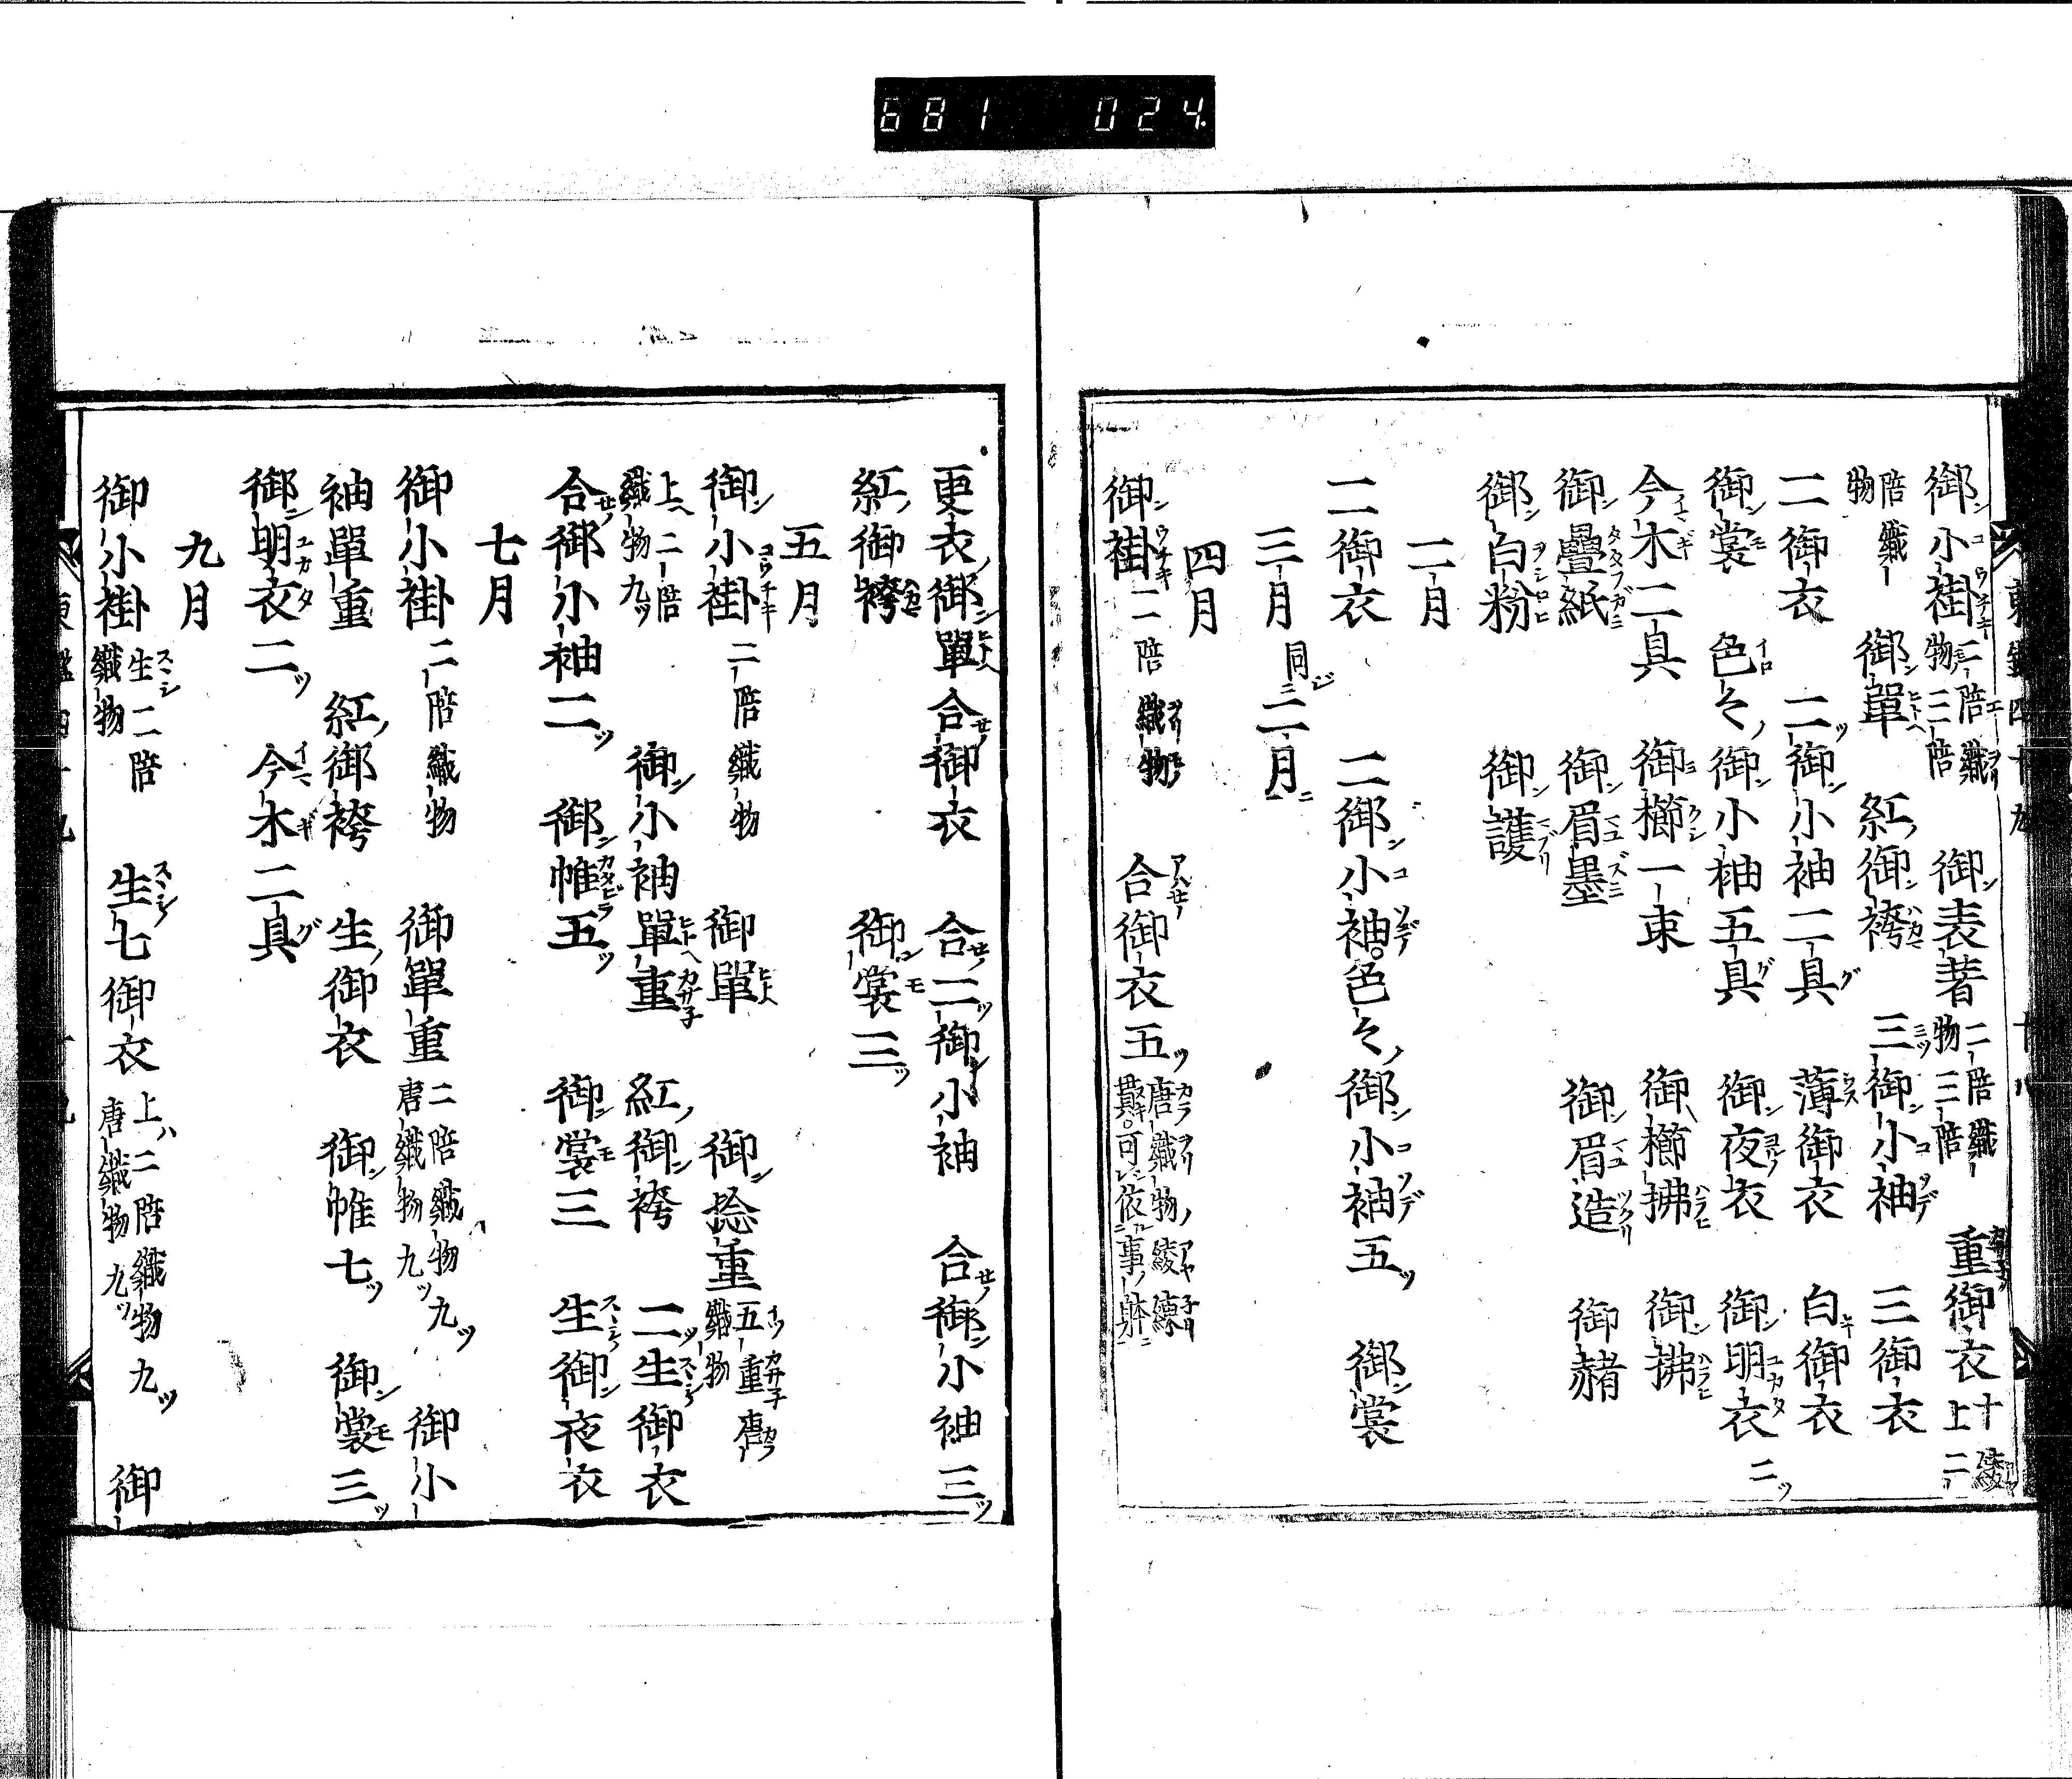 681 024
御小褂 二陪織物三陪 御表著 二陪織物三陪 重御衣 十上二
陪織物 御單 紅御袴 三御小袖 三御衣
二御衣 二御小袖二具 薄御衣 白御衣
御裳 色々御小袖五具 御夜衣 御明衣二
今木二具 御櫛一束 御櫛拂 御拂
御疊紙 御眉墨 御眉造 御赭
御白粉 御護
二月
二御衣 二御小袖色々御小袖五 御裳
三月 同二月
四月
御褂 二陪織物 合御衣五 唐織物綾練可依事躰
更衣御單合御衣 合二御小袖 合御小袖三
紅御袴 御裳三
五月
御小褂 二陪織物 御單 御捻重 五重唐織物
上二陪織物九 御小袖單重 紅御袴 二生御衣
合御小袖二 御帷五 御裳三 生御夜衣
七月
御小褂 二陪織物 御單重 二陪織物九唐織物九 御小
袖單重 紅御袴 生御衣 御帷七 御裳三
御明衣二 今木二具
九月
御小褂 生二陪織物 生七御衣 上二陪織物九唐織物九 御